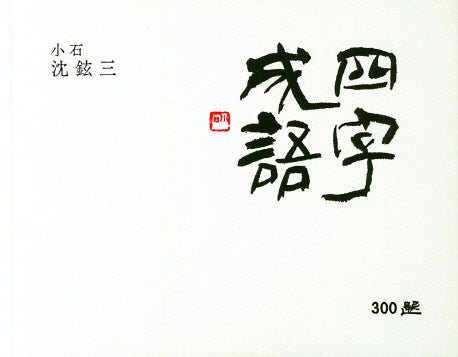 四字
成語
小石
沈鉉三
300